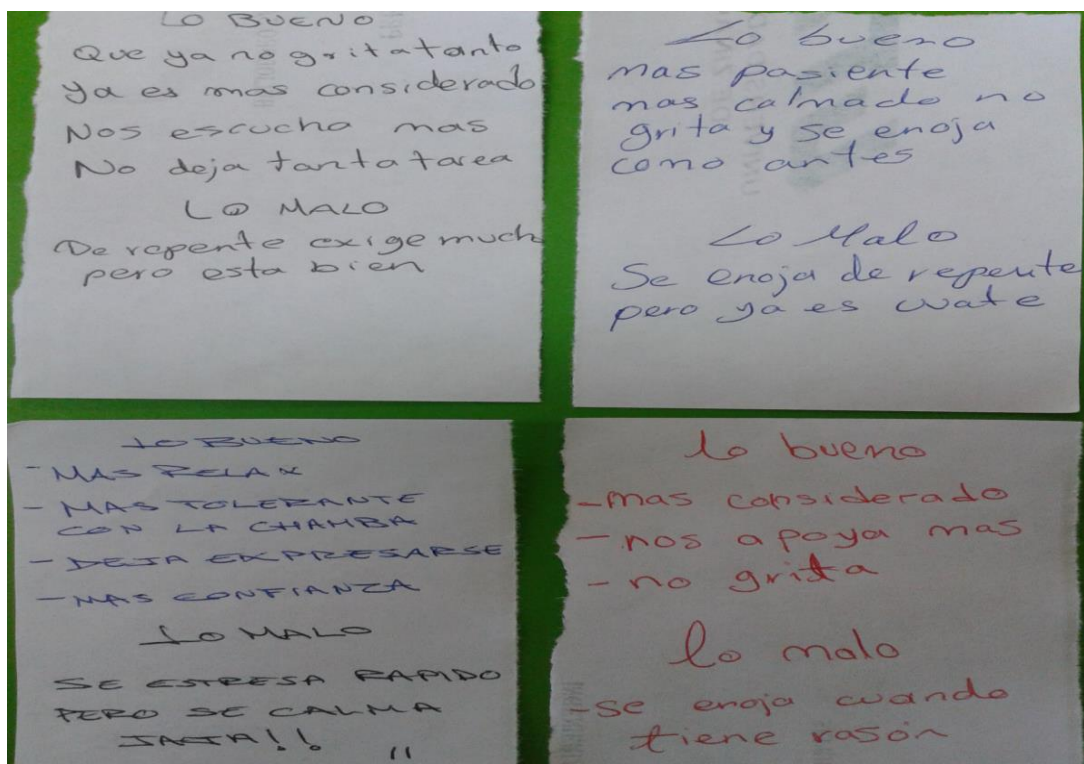 LO BUENO
Que ya no grita tanto
ya es mas considerado
Nos escucha mas
No deja tanta tarea
LO MALO
De repente exige much
pero esta bien
Lo bueno
mas pasiente
mas calmado no
grita y se enoja
como antes
Lo Malo
Se enoja de repente
pero ya es cuate
LO BUENO
- MAS RELAX
- MAS TOLERANTE
CON LA CHAMBA
- DEJA EXPRESARSE
- MAS CONFIANZA
LO MALO
SE ESTRESA RAPIDO
PERO SE CALMA
JAJA!!
lo bueno
- mas considerado
- nos apoya mas
- no grita
lo malo
- se enoja cuando
tiene rasón